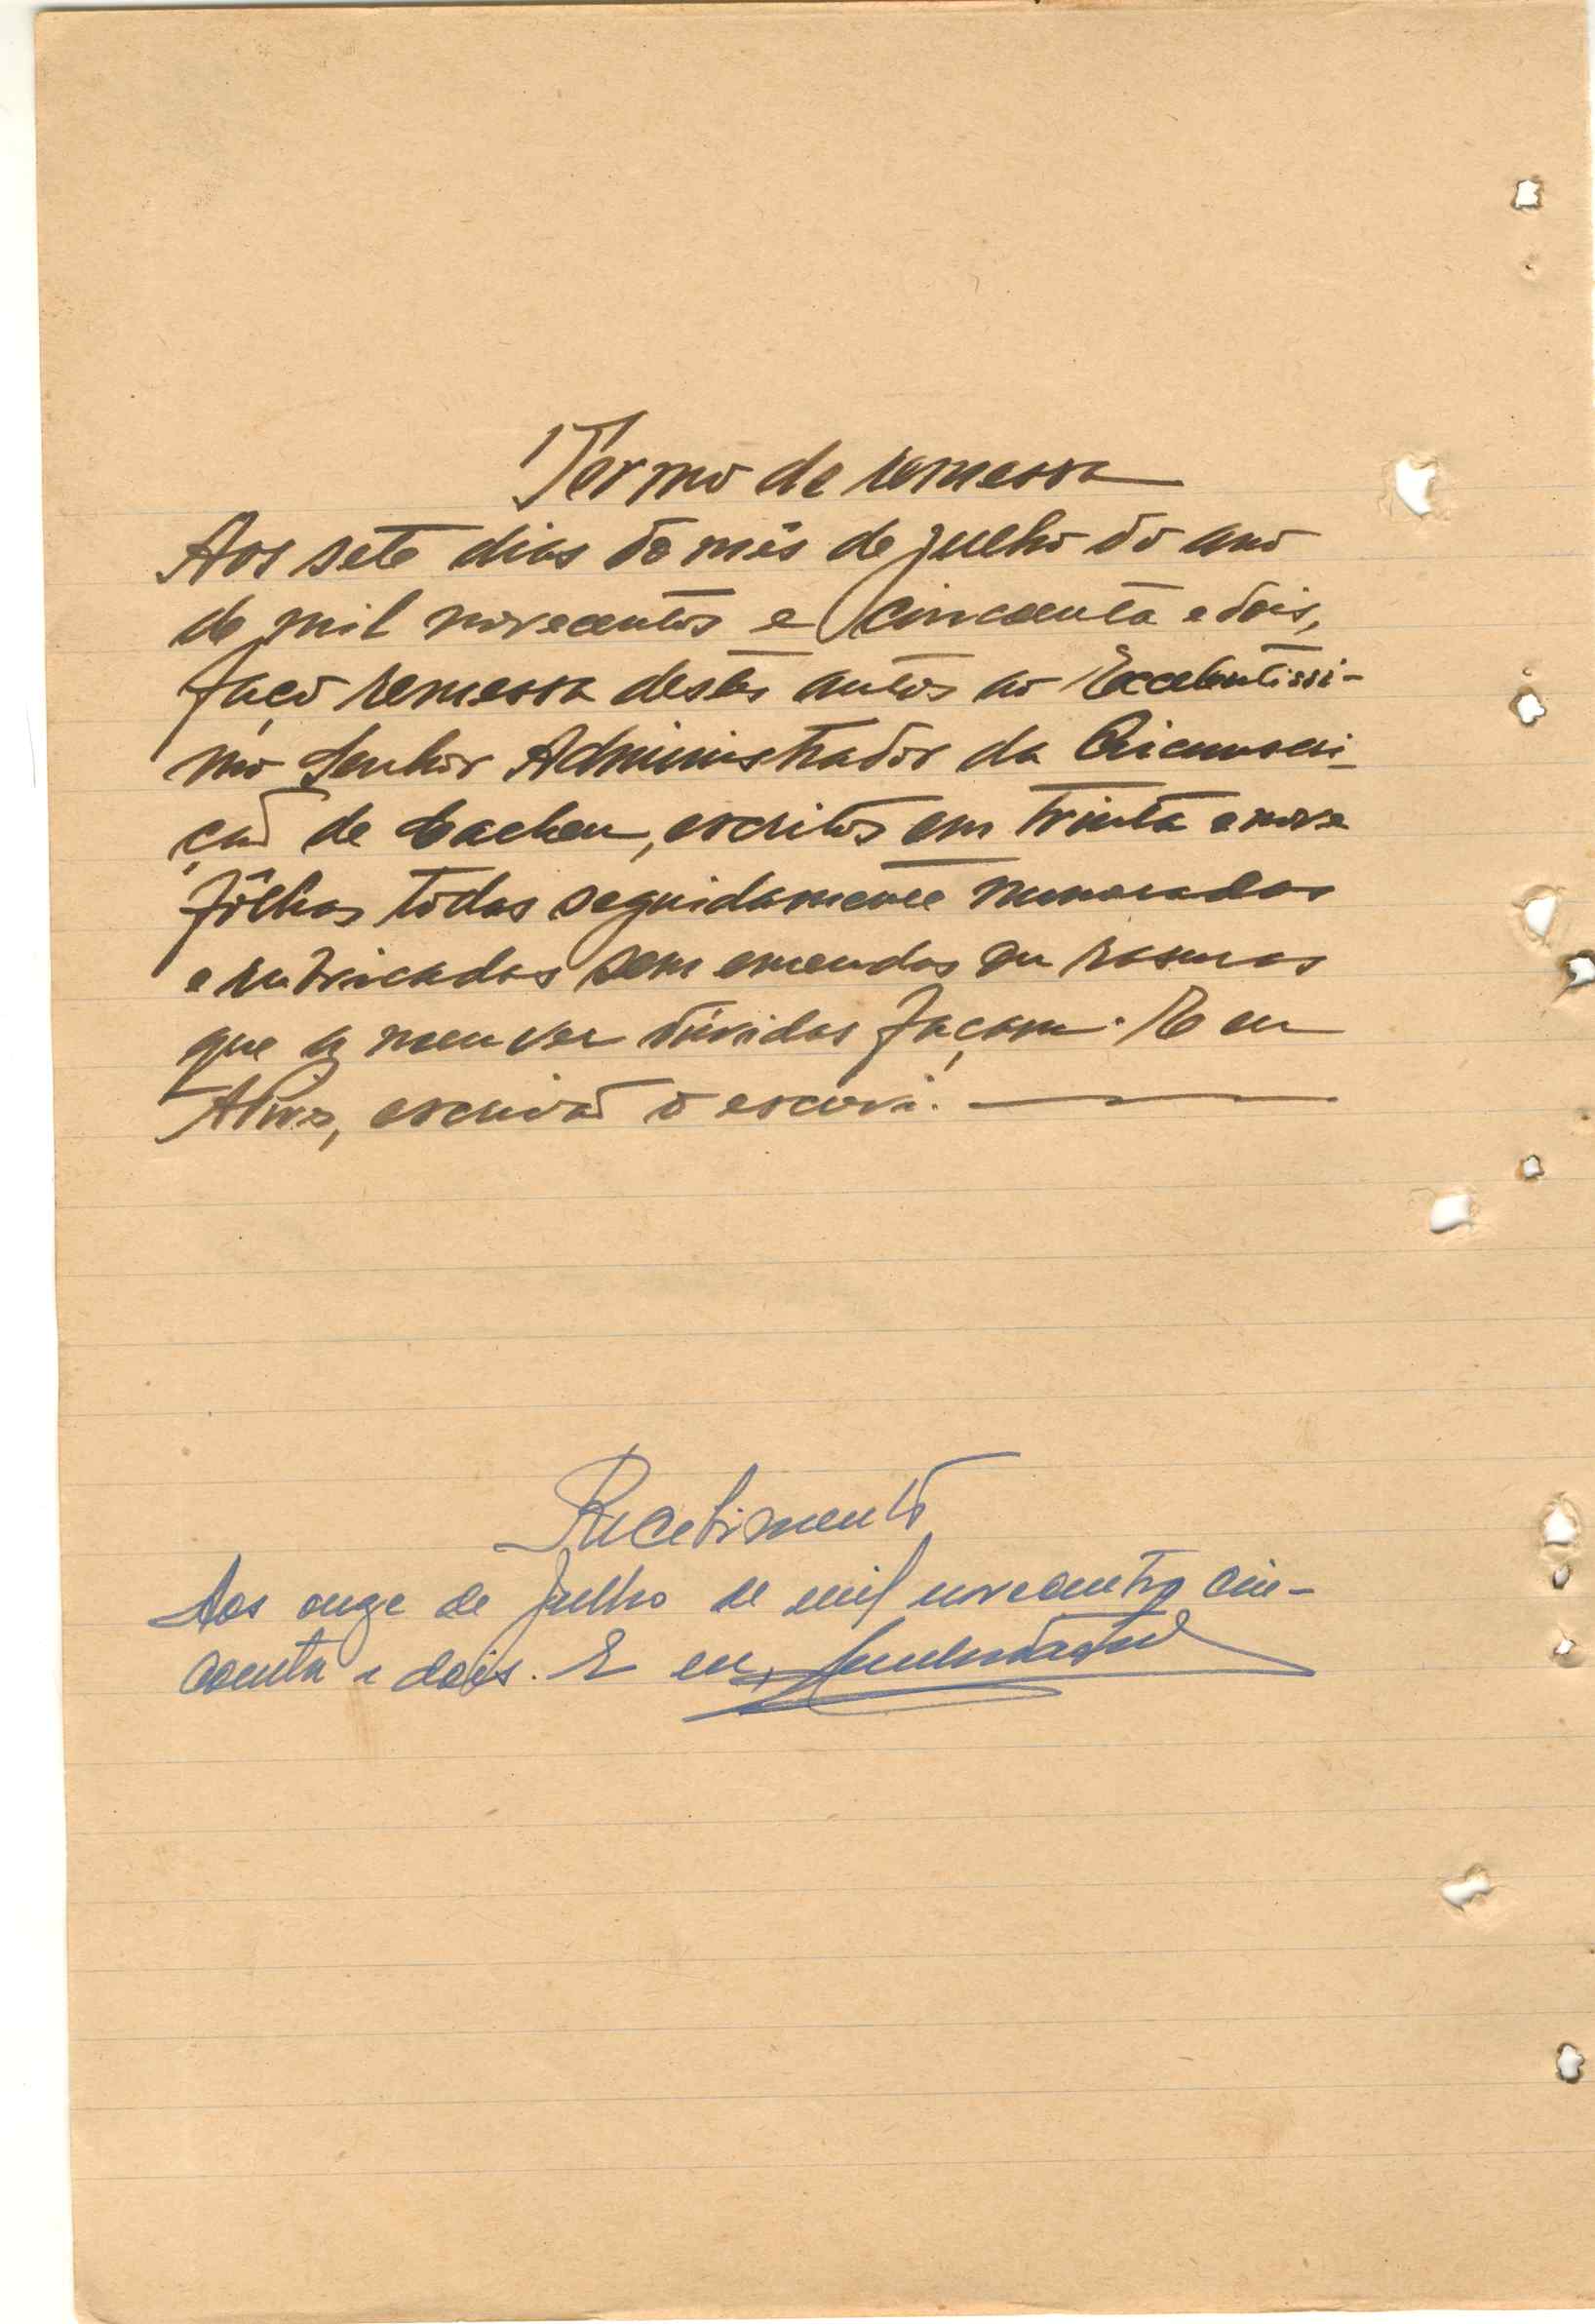 Termo de remessa
Aos sete dias do mês de julho do ano
de mil novecentos e cincoenta e dois,
faço remessa destes autos ao Excelentissi-
mo Senhor Administrador da Circunscri-
ção de Cacheu, escritos em trinta e nove
fôlhas todas seguidamente numeradas
e rubricadas sem emendas ou rasuras
que a meu ver dúvidas façam. E eu
escrivão o escrevi.
Recebimento
Aos onze de Julho de mil novecentos cin-
coenta e dois. E eu,